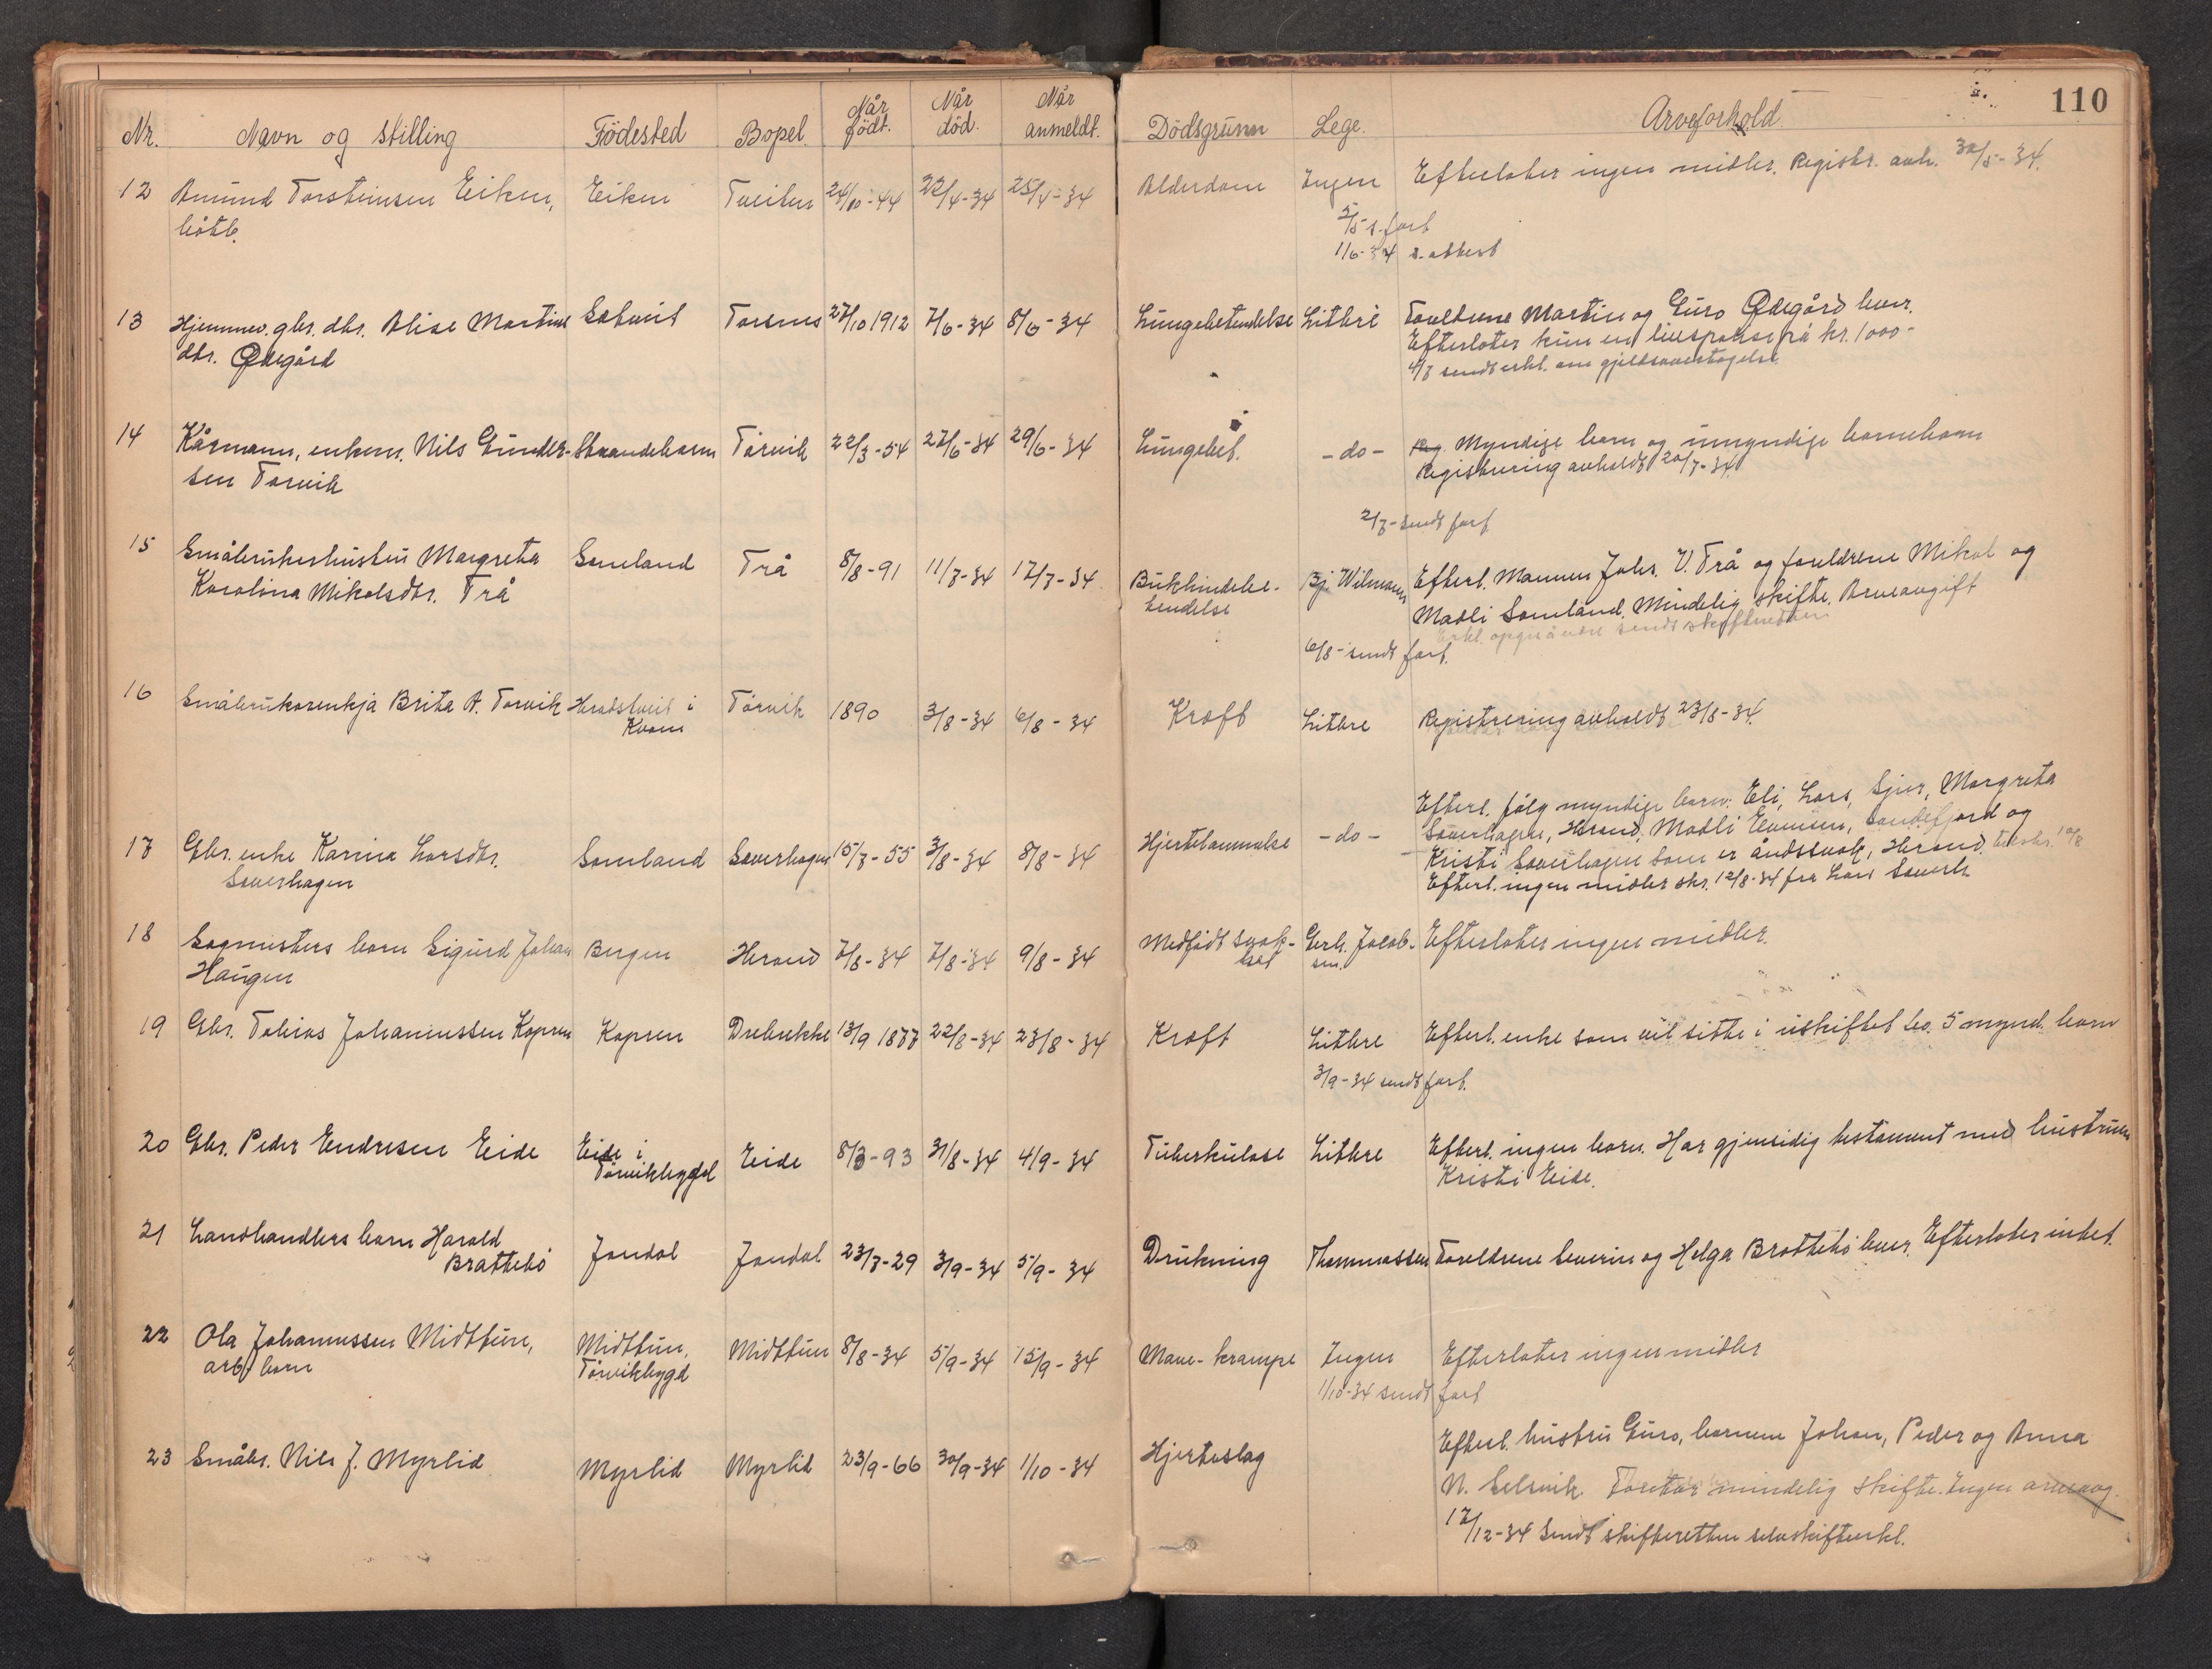 110
Nr. Navn og stilling Födested Bopel Når födt. Når död. Når anmeldt. Dödsgrunn Lege. Arveforhold
12 Amund Torsteinsen Eiken, Eiken Tveiten 24/10-44 22/4-34 25/4-34 Alderdom Ingen Efterlater ingen midler. Registr. avh. 30/5-34.
kötb.
2/5 s. fort
1/6-34 s. attest
13 Hjemmev. gbr. dtr. Alise Martine Solveit Torsnes 27/10 1912 7/6-34 8/6-34 Lungebetendelse Litkré Foreldrene Martin og Guro Ødegård lever.
dtr. Ødegård Efterlater kun en livspolise på kr. 1000-
4/7 sendt erkl. om gjeldsovertagelse
14 Kårmann, enkem. Nils Gunder- Strandebarm Törvik 22/3-54 27/6-34 29/6-34 Lungebet. -do- Reg. Myndige barn og umyndige barnebarn
sen Torvik Registrering avholdt 20/7-34
2/7-sendt fort
15 Småbrukerhustru Margreta Samland Trå 8/8-91 11/7-34 17/7-34 Bukhindebe- Bj. Wilmann Efterl. Mannen Johs. V. Trå og foreldrene Mikal og
Karolina Mikalsdtr. Trå tendelse Madli Samland. Mindelig skifte. Arveavgift
Erkl. sendt
6/8-sendt fort.
16 Småbrukerenkja Brita A. Torvik Heradstveit i Törvik 1890 3/8-34 6/8-34 Kreft Litkre Registrering avholdt 23/8-34.
Kvam
Efterl. fölg myndige barn: Eli, Lars, Sjur, Margreta
17 Gbr. enke Karina Larsdtr. Samland Saverhagen 15/7-55 3/8-34 8/8-34 Hjertelammelse -do- Saverhagen, Herand, Madli Evensen, Sandefjord og
Saverhagen Kristi Saverhagen som er åndssvak, Herand. tilskr. 10/8
Efterl. ingen midler skr. 12/8-34 fra Lars Saverh.
18 Sagmesters barn Sigurd Johan Bergen Herand 7/8-34 7/8-34 9/8-34 Medfödt svak- Gerh. Jacob- Efterlater ingen midler.
Haugen het sen.
19 Gbr. Tobias Johannessen Kopren Kopren Drebrekke 13/9 1877 22/8-34 23/8-34 Kreft Litkre Efterl. enke som vil sitte i uskiftet bo. 5 mynd. barn
3/9-34 sendt fort.
20 Gbr. Peder Endresen Eide Eide i Eide 8/3-93 31/8-34 4/9-34 Tuberkulose Litkre Efterl. ingen barn. Har gjensidig testament med hustruen
Törvikbygd Kristi Eide.
21 Landhandlers barn Harald Jondal Jondal 23/7-29 3/9-34 5/9-34 Drukning Thommassen Foreldrene Severin og Helga Brattebö lever. Efterlater intet.
Brattebö
22 Ola Johannessen Midttun, Midttun, Midttun 8/8-34 5/9-34 15/9-34 Mave-krampe Ingen Efterlater ingen midler
arb. barn Törvikbygd
1/10-34 sendt fort
Efterl. hustru Guro, barnene Johan, Peder og Anna
23 Småbr. Nils J. Myrlid Myrlid Myrlid 23/9-66 30/9-34 1/10-34 Hjerteslag
N. Selsvik. Foretar mindelig skifte. Ingen arveavg.
17/12-34 Sendt skifteretten selvskifteerkl.